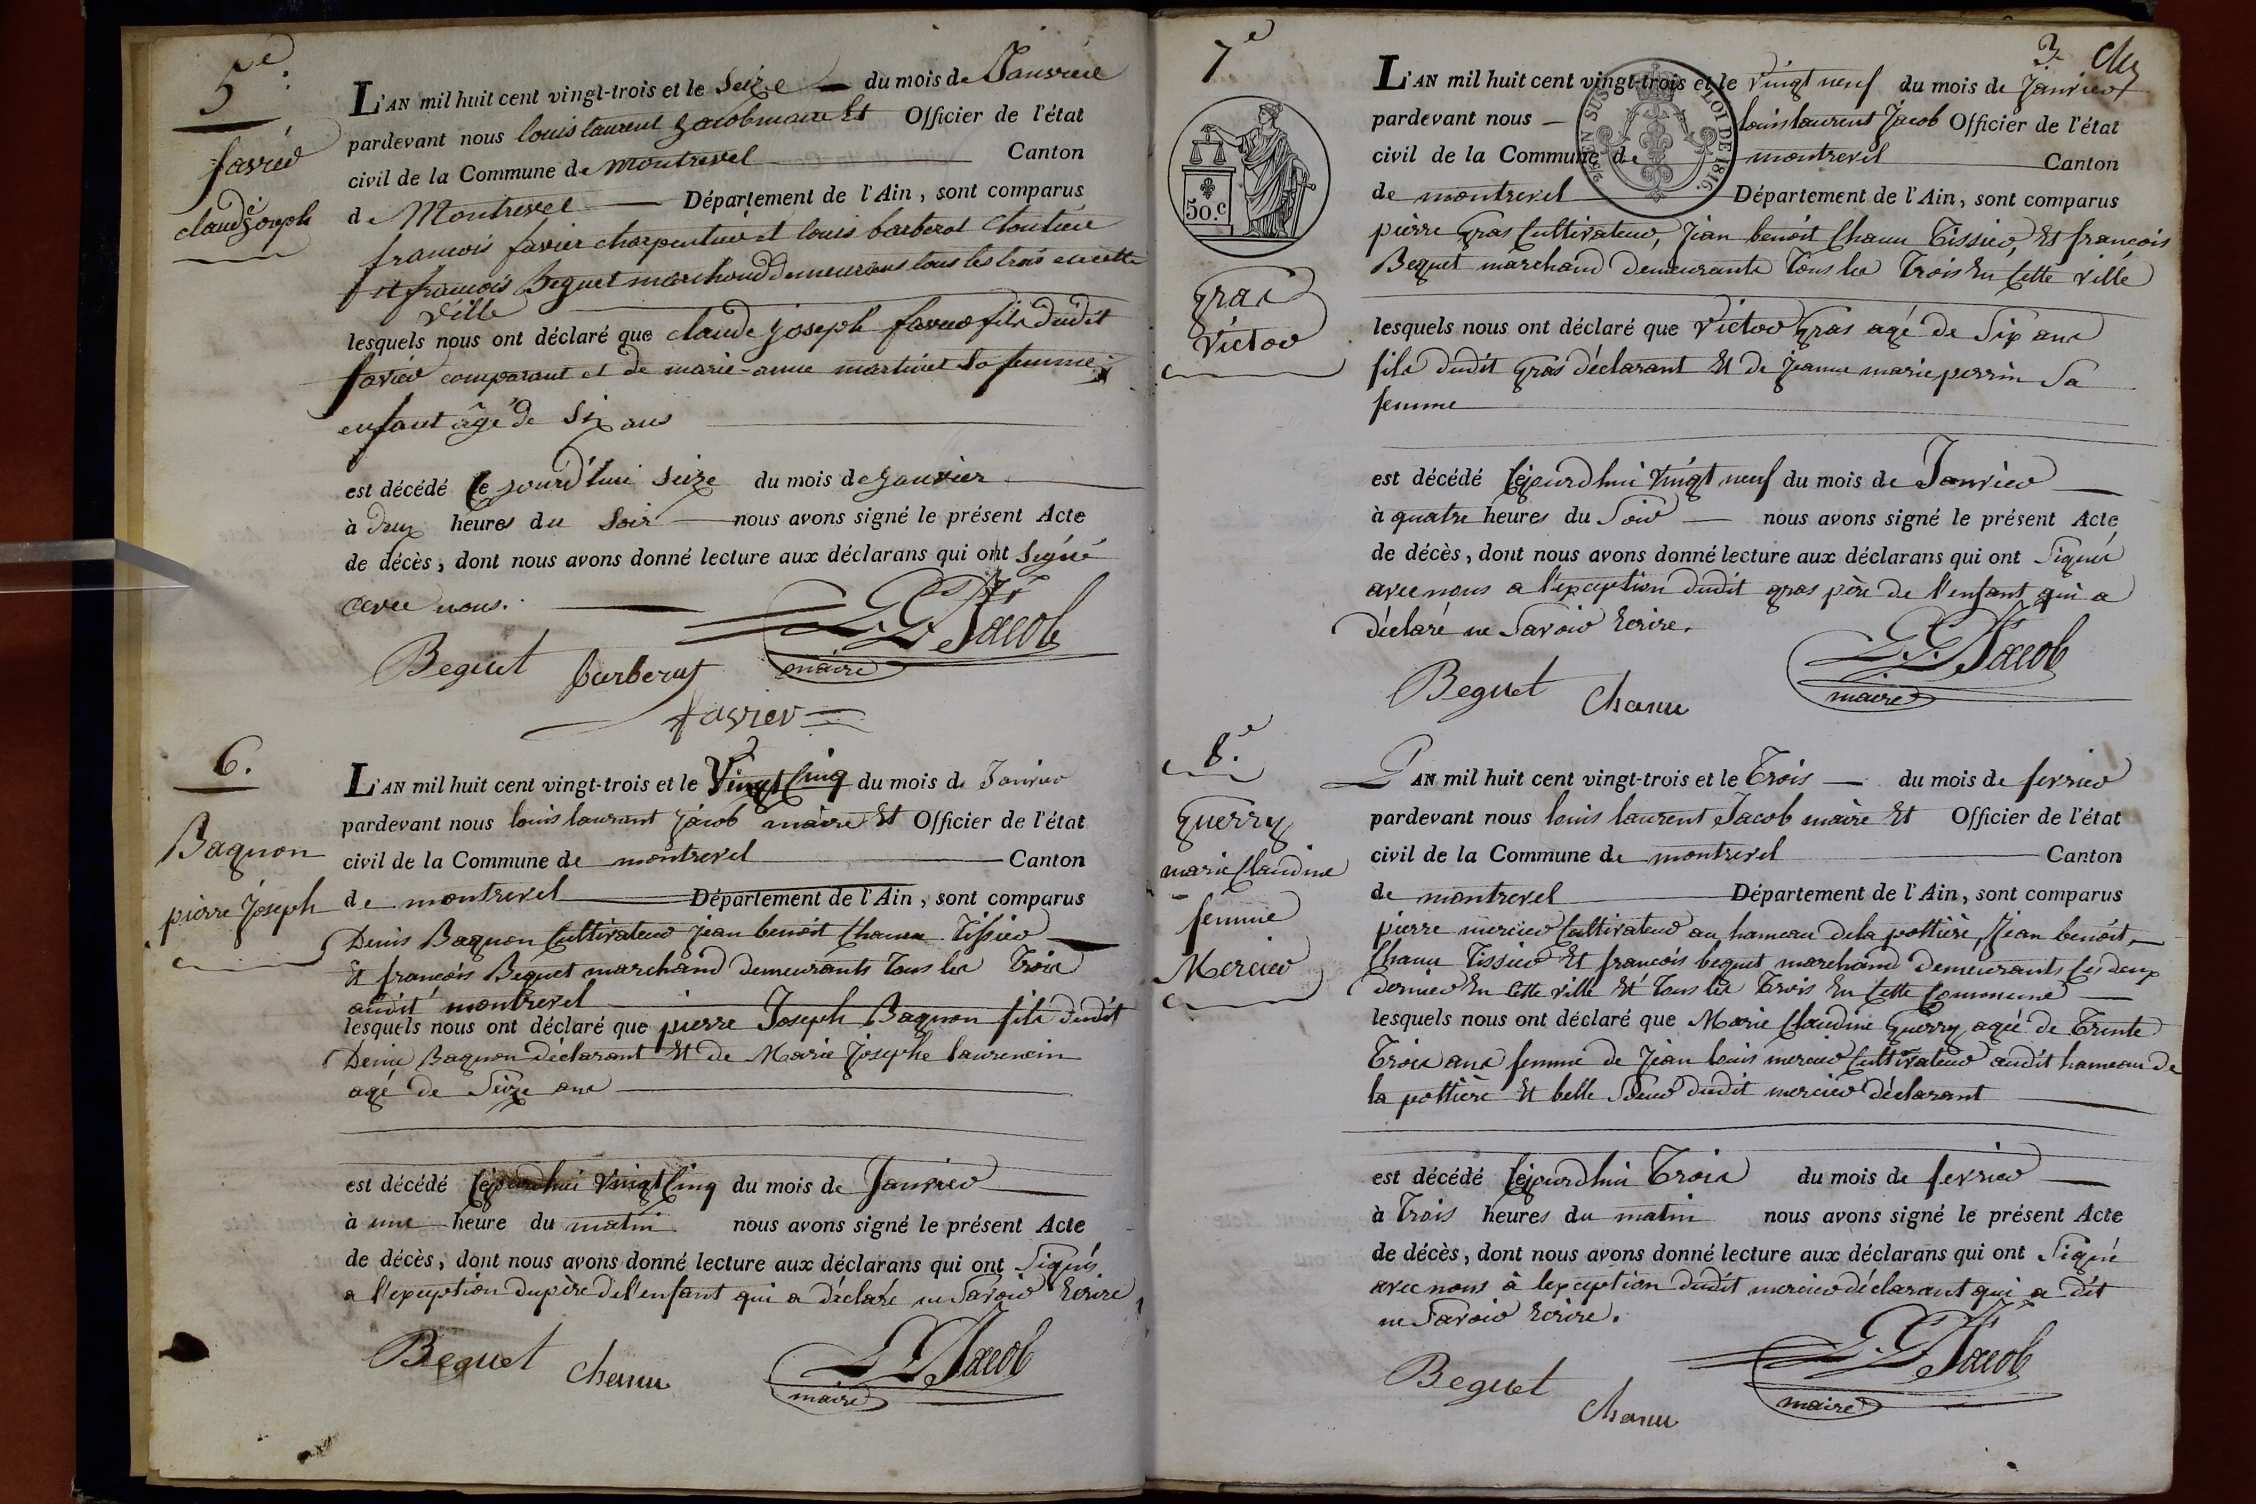 5e
favier
claude joseph
L'AN mil huit cent vingt-trois et le Seize du mois de Janvier
pardevant nous louis laurent Jacob maire Et Officier de l'état
civil de la Commune de montrevel Canton
de Montrevel Département de l'Ain, sont comparus
francois favier charpentier et louis barberot cloutier
et francois Beguet marchand demeurans tous les trois en cette
ville
lesquels nous ont déclaré que claude joseph favier fils dudit
favier comparant et de marie-anne martinet sa femme
enfant âgé de Six ans
est décédé Ce jourd'hui Seize du mois de janvier
à deux heures du Soir nous avons signé le présent Acte
de décès, dont nous avons donné lecture aux déclarans qui ont Signé
avec nous.
L. L. Jacob
maire
Beguet barberot
favier
6.
Bagnon
pierre Joseph
L'AN mil huit cent vingt-trois et le Vingt Cinq du mois de Janvier
pardevant nous louis laurent Jacob maire Et Officier de l'état
civil de la Commune de montrevel Canton
de montrevel Département de l'Ain, sont comparus
Denis Bagnon Cultivateur Jean benoit Chanu Tissier
Et francois Beguet marchand demeurants Tous les Trois
audit montrevel
lesquels nous ont déclaré que pierre Joseph Bagnon fils dudit
Denis Bagnon déclarant Et de Marie Josephe laurencin
agé de Seize ans
est décédé Cejourdhui Vingt Cinq du mois de Janvier
à une heure du matin nous avons signé le présent Acte
de décès, dont nous avons donné lecture aux déclarans qui ont Signés
a l'exception du père de l'enfant qui a déclaré ne Savoir Ecrire
Beguet Chanu L. L. Jacob
maire
7e
3
50.c
LOI DE 1816.
EN SUS
Gras
Victor
L'AN mil huit cent vingt-trois et le Vingt neuf du mois de Janvier
pardevant nous louis laurent Jacob Officier de l'état
civil de la Commune de montrevel Canton
de montrevel Département de l'Ain, sont comparus
pierre Gras Cultivateur, Jean benoit Chanu Tissier, Et francois
Beguet marchand demeurants Tous les Trois En Cette ville
lesquels nous ont déclaré que Victor Gras agé de Six ans
fils dudit Gras déclarant Et de Jeanne marie perrin Sa
femme
est décédé Cejourdhui Vingt neuf du mois de Janvier
à quatre heures du Soir nous avons signé le présent Acte
de décès, dont nous avons donné lecture aux déclarans qui ont Signés
avec nous a l'exception dudit gras père de l'enfant qui a
déclaré ne Savoir Ecrire.
L. L. Jacob
maire
Beguet Chanu
8.e
Guerry
marie Claudine
femme
Mercier
L'AN mil huit cent vingt-trois et le Trois du mois de fevrier
pardevant nous louis laurent Jacob maire Et Officier de l'état
civil de la Commune de montrevel Canton
de montrevel Département de l'Ain, sont comparus
pierre mercier Cultivateur au hameau de la pottière, Jean benoit
Chanu Tissier Et francois beguet marchand demeurants Ces deux
dernier En Cette ville Et Tous les Trois En Cette Commune
lesquels nous ont déclaré que Marie Claudine Guerry agée de Trente
Trois ans femme de Jean louis mercier Cultivateur audit hameau de
la pottière Et belle Soeur dudit mercier déclarant
est décédé Cejourdhui Trois du mois de fevrier
à Trois heures du matin nous avons signé le présent Acte
de décès, dont nous avons donné lecture aux déclarans qui ont Signé
avec nous à lexception dudit mercier déclarant qui a dit
ne Savoir Ecrire.
L. L. Jacob
maire
Beguet
Chanu